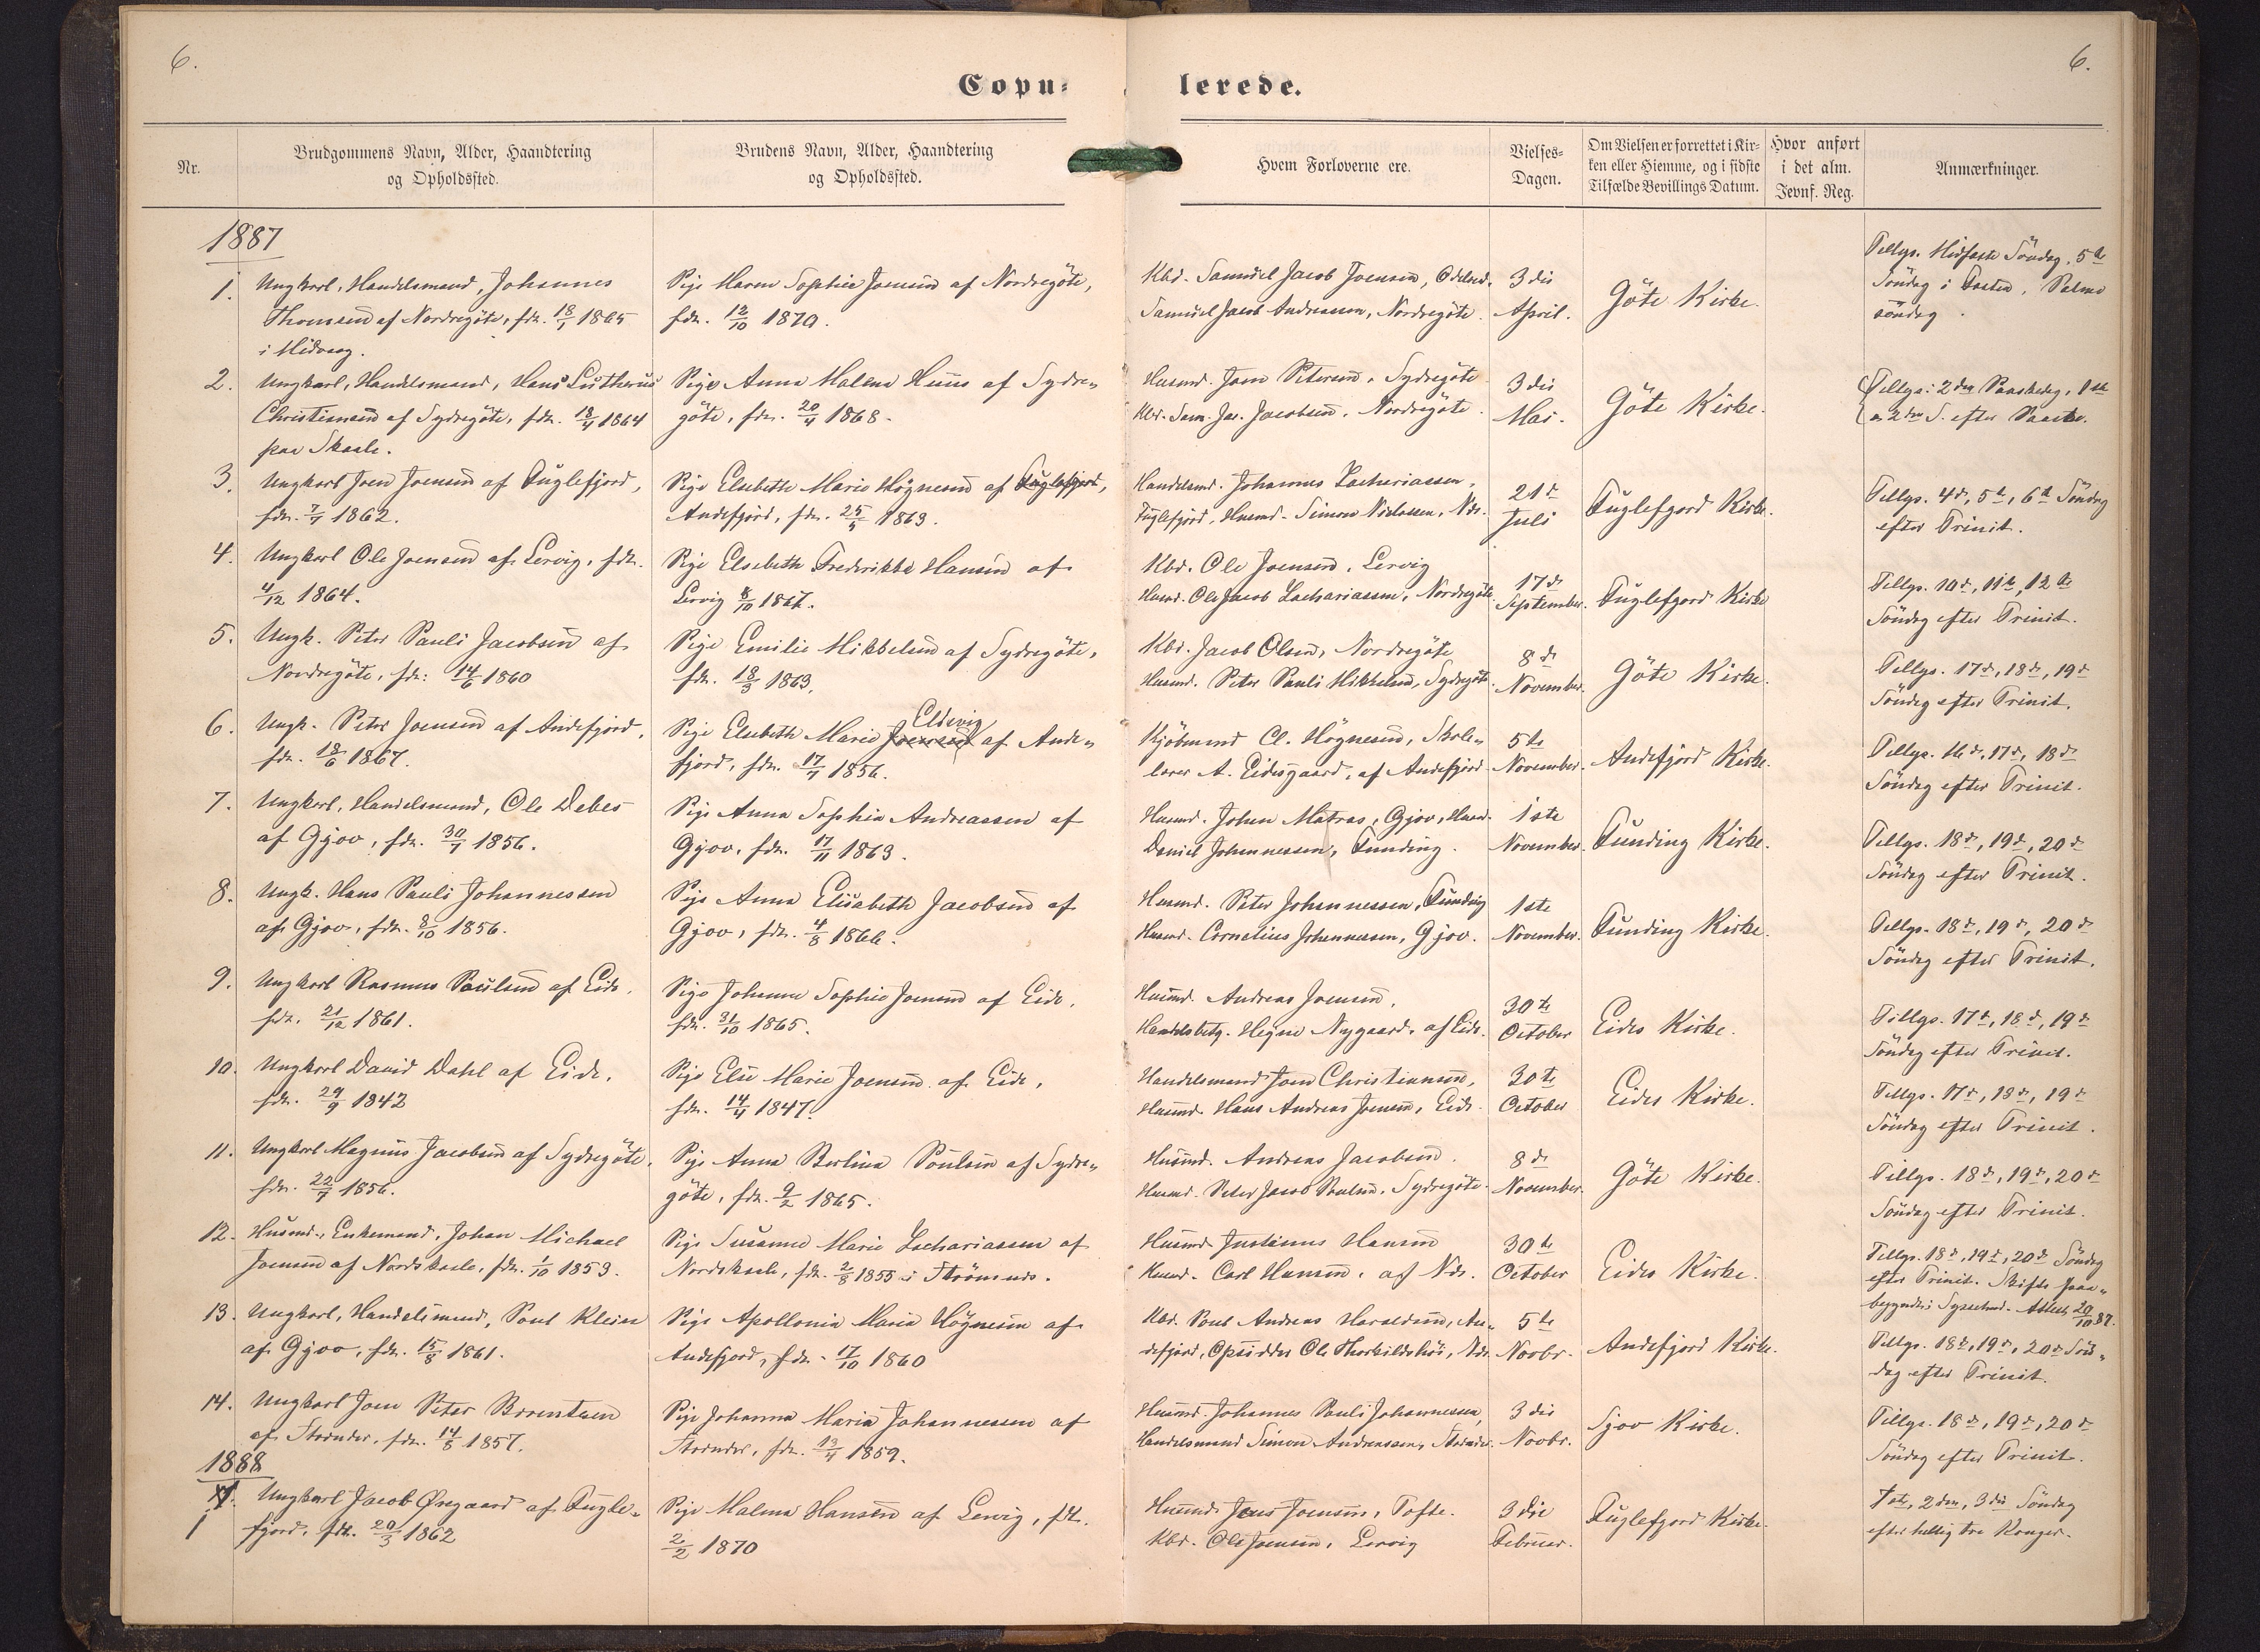 6.
6.
Copu=
lerede.
Nr.
Brudgommens Navn, Alder, Haandtering
og Opholdssted.
Brudens Navn, Alder, Haandtering
og Opholdssted.
Hvem Forloverne ere.
Vielses-
Dagen.
Om Vielsen er forrettet i Kir-
ken eller Hiemme, og i sidste
Tilfælde Bevillings Datum.
Hvor anført
i det alm.
Jevnf. Reg.
Anmærkninger.
1887
1.
Ungkarl, Handelsmand, Johannes
Thomsen af Nordregöte, fdt. 18/1 1865
i Midvaag.
Pige Maren Sophie Joensen af Nordregöte,
fdt. 12/10 1870.
Kbd. Samuel Jacob Joensen,
Samuel Jacob Andreassen, Nordregöte.
3die
April.
Göte Kirke.
Tillyst Midfaste Söndag, 5te
Söndag i Fasten, Palme
söndag.
2.
Ungkarl, Handelsmand, Hans Lutherus
Christiansen af Sydregöte, fdt. 18/4 1864
paa Skaale.
Pige Anna Malene Huus af Sydre-
göte, fdt. 20/4 1868.
Husmd. Joen Petersen, Sydregöte
Kbd. Sam. Jac. Jacobsen, Nordregöte.
3die
Mai.
Göte Kirke.
Tillys. 2den Paaskedag, 1ste
og 2den S. efter Paaske.
3.
Ungkarl Joen Joensen af Fuglefjord,
fdt. 7/7 1862.
Pige Elsebeth Marie Högnesen af Fuglefjord,
Andefjord, fdt. 25/5 1863.
Handelsmd. Johannes Zachariassen,
Fuglefjord, Husmd. Simon Niclassen, Nds.
21de
Juli
Fuglefjord Kirke.
Tillys. 4de, 5te, 6te Söndag
efter Trinit.
4.
Ungkarl Ole Joensen af Lervig, fdt.
4/12 1864.
Pige Elsebeth Frederikke Hansen af
Lervig 8/10 1867.
Kbd. Ole Joensen, Lervig
Husmd. Ole Jacob Zachariassen, Nordregöte.
17de
September.
Fuglefjord Kirke
Tillys. 10de, 11te, 12te
Söndag efter Trinit.
5.
Ungk. Peter Pauli Jacobsen af
Nordregöte, fdt. 14/6 1860
Pige Emilie Mikkelsen af Sydregöte,
fdt. 18/3 1863.
Kbd. Jacob Olsen, Nordregöte
Husmd. Peter Pauli Mikkelsen, Sydregöte.
8de
November.
Göte Kirke.
Tillys. 17de, 18de, 19de
Söndag efter Trinit.
6.
Ungk. Peter Joensen af Andefjord,
fdt. 18/6 1867.
Eldevig
Pige Elsebeth Marie Joensen af Ande-
fjord, fdt. 17/7 1856.
Kjöbmand Cl. Högnesen, Skole-
lærer A. Eidesgaard, af Andefjord
5te
November.
Andefjord Kirke.
Tillys. 16de, 17de, 18de
Söndag efter Trinit.
7.
Ungkarl, Handelsmand, Ole Debes
af Gjov, fdt. 30/7 1856.
Pige Anna Sophie Andreassen af
Gjov, fdt. 17/11 1863.
Husmd. Johan Matras, Gjov, Husmd.
Daniel Johannessen, Funding.
1ste
November.
Funding Kirke.
Tillys. 18de, 19de, 20de
Söndag efter Trinit.
8.
Ungk. Hans Pauli Johannessen
af Gjov, fdt. 8/10 1856.
Pige Anna Elisabeth Jacobsen af
Gjov, fdt. 4/8 1866.
Husmd. Peter Johannessen, Funding
Husmd. Cornelius Johannessen, Gjov.
1ste
November.
Funding Kirke.
Tillys. 18de, 19de, 20de
Söndag efter Trinit.
9.
Ungkarl Rasmus Poulsen af Eide,
fdt. 21/12 1861.
Pige Johanne Sophie Joensen af Eide,
fdt. 31/10 1865.
Husmd. Andreas Joensen,
Handelsbetj. Hegne Nygaard, af Eide.
30te
October
Eides Kirke.
Tillys. 17de, 18de, 19de
Söndag efter Trinit.
10.
Ungkarl David Dahl af Eide,
fdt. 29/9 1842
Pige Else Marie Joensen af Eide,
fdt. 14/4 1847.
Handelsmand Joen Christiansen,
Husmd. Hans Andreas Joensen, Eide.
30te
October
Eides Kirke.
Tillys. 17de, 18de, 19de
Söndag efter Trinit.
11.
Ungkarl Magnus Jacobsen af Sydregöte,
fdt. 22/7 1856.
Pige Anna Berlina Poulsen af Sydre-
göte, fdt. 9/2 1865.
Husmd. Andreas Jacobsen.
Husmd. Peter Jacob Poulsen, Sydregöte.
8de
November.
Göte Kirke.
Tillys. 18de, 19de, 20de
Söndag efter Trinit.
12.
Husmd., Enkemand, Johan Michael
Joensen af Nordskaale, fdt. 1/10 1853.
Pige Susanne Marie Zachariassen af
Nordskaale, fdt. 2/8 1855 i Strömnæs.
Husmd. Justinus Hansen
Husmd. Carl Hansen, af Nds.
30te
October
Eides Kirke.
Tillys. 18de, 19de, 20de Söndag
efter Trinit. Skifte paa-
begyndt i Sysselmd. Attest 20/10 87.
13.
Ungkarl, Handelsmand, Poul Klein
af Gjov, fdt. 15/8 1861.
Pige Apollonia Maria Högnesen af
Andefjord, fdt. 17/10 1860
Kbd. Poul Andreas Haraldsen, An-
defjord, Opsidder Ole Thorkildshöi, Nds.
5te
Novbr.
Andefjord Kirke.
Tillys. 18de, 19de, 20de Sön-
dag efter Trinit.
14.
Ungkarl Joen Peter Berentsen
af Storndes, fdt. 14/8 1857.
Pige Johanna Maria Johannessen af
Storndes, fdt. 13/4 1859.
Husmd. Johannes Pauli Johannessen,
Handelsmand Simon Andreassen, Storndes.
3die
Novbr.
Sjov Kirke.
Tillys. 18de, 19de, 20de
Söndag efter Trinit.
1888
1
Ungkarl Jacob Øregaard af Fugle-
fjord, fdt. 20/3 1862
Pige Malena Hansen af Lervig, fdt.
2/2 1870
Husmd. Jens Joensen, Tofte.
Kbd. Ole Joensen, Lervig
3die
Februar.
Fuglefjord Kirke.
1ste, 2den, 3die Söndag
efter hellig tre Konger.